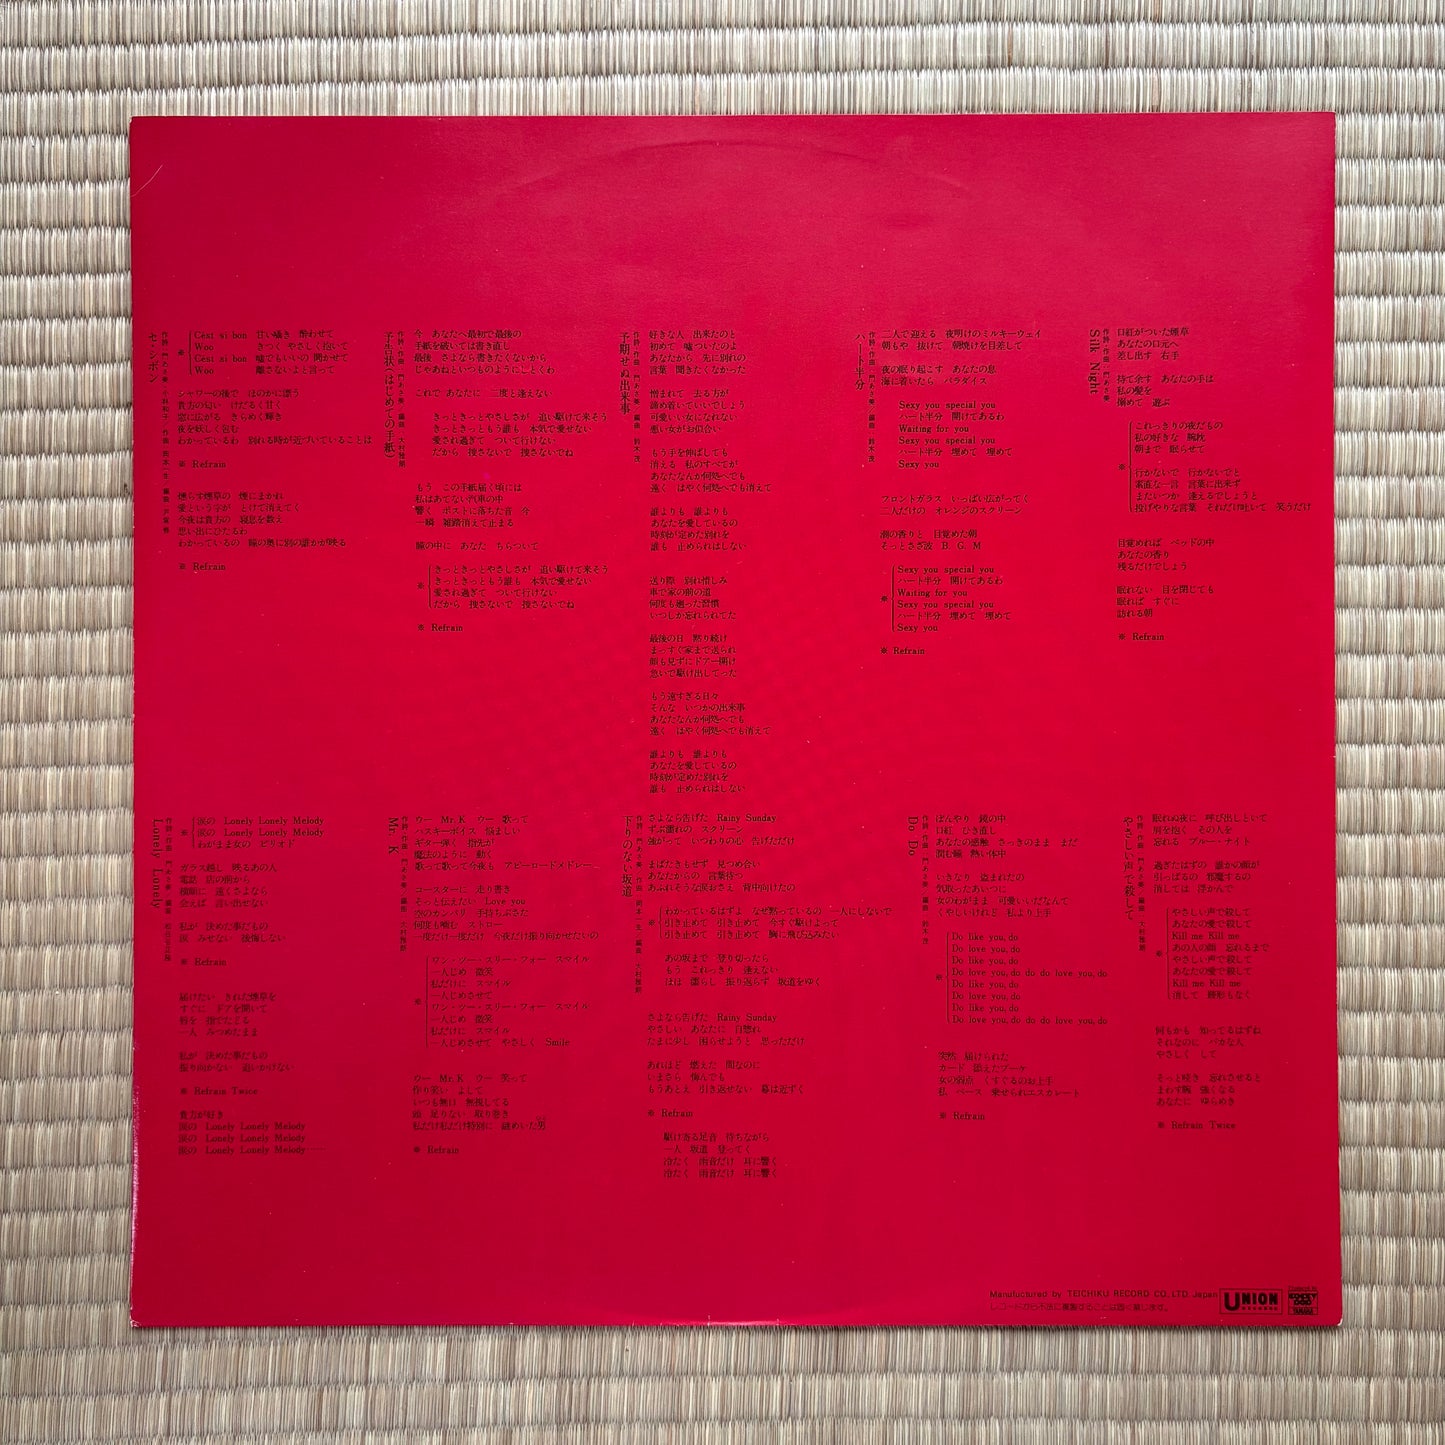 セ・シボン
C'est si bon 甘い囁き 酔わせて
Woo きつく やさしく抱いて
C'est si bon 嘘でもいいの 聞かせて
Woo 離さないよと言って
シャワーの後で ほのかに漂う
貴方の匂い けだるく甘く
窓に広がる きらめく輝き
夜を妖しく包む
わかっているわ 別れる時が近づいていることは
※ Refrain
燻らす煙草の 煙にまかれ
愛という字が とけて消えてく
今夜は貴方の 寝息を数え
思い出にひたるわ
わかっているの 瞳の奥に別の誰かが映る
※ Refrain
予告状(はじめての手紙)
今 あなたへ最初で最後の
手紙を破いては書き直し
最後 さよなら書きたくないから
じゃあねといつものようにしとくわ
これで あなたに 二度と逢えない
きっときっとやさしさが 追い駆けて来そう
きっときっともう誰も 本気で愛せない
愛され過ぎて ついて行けない
だから 捜さないで 捜さないでね
もう この手紙届く頃には
私はあてない汽車の中
響く ポストに落ちた音 今
一瞬 雑踏消えて止まる
瞳の中に あなた ちらついて
※
きっときっとやさしさが 追い駆けて来そう
きっときっともう誰も 本気で愛せない
愛され過ぎて ついて行けない
だから 捜さないで 捜さないでね
※ Refrain
予期せぬ出来事
好きな人 出来たのと
初めて 嘘ついたのよ
あなたから 先に別れの
言葉 聞きたくなかった
憎まれて 去る方が
諦め着いていいでしょう
可愛いい女になれない
悪い女がお似合い
もう手を伸ばしても
消える 私のすべてが
あなたなんか何処へでも
遠く はやく何処へでも消えて
誰よりも 誰よりも
あなたを愛しているの
時刻が定めた別れを
誰も 止められはしない
送り際 別れ惜しみ
車で家の前の道
何度も廻った習慣
いつしか忘れられてた
最後の日 黙り続け
まっすぐ家まで送られ
顔も見ずにドアー開け
急いで駆け出してった
もう遠すぎる日々
そんな いつかの出来事
あなたなんか何処へでも
遠く はやく何処へでも消えて
誰よりも 誰よりも
あなたを愛しているの
時刻が定めた別れを
誰も 止められはしない
ハート半分
二人で迎える 夜明けのミルキーウェイ
朝もや 抜けて 朝焼けを目差して
夜の眠り起こす あなたの息
海に着いたら パラダイス
Sexy you special you
ハート半分 開けてあるわ
Waiting for you
Sexy you special you
ハート半分 埋めて 埋めて
Sexy you
フロントガラス いっぱい広がってく
二人だけの オレンジのスクリーン
潮の香りと 目覚めた朝
そっとさざ波 B.G.M
※
Sexy you special you
ハート半分 開けてあるわ
Waiting for you
Sexy you special you
ハート半分 埋めて 埋めて
Sexy you
※ Refrain
Silk Night
口紅がついた煙草
あなたの口元へ
差し出す 右手
持て余す あなたの手は
私の髪を
掴めて 遊ぶ
※
これっきりの夜だもの
私の好きな 腕枕
朝まで 眠らせて
行かないで 行かないでと
素直な一言 言葉に出来ず
またいつか 逢えるでしょうと
投げやりな言葉 それだけ吐いて 笑うだけ
目覚めれば ベッドの中
あなたの香り
残るだけでしょう
眠れない 目を閉じても
眠れば すぐに
訪れる朝
※ Refrain
Lonely Lonely
涙の Lonely Lonely Melody
涙の Lonely Lonely Melody
わがまま女の ピリオド
ガラス越し 映るあの人
電話 店の前から
横顔に 遠くさよなら
会えば 言い出せない
私が 決めた事だもの
涙 みせない 後悔しない
※ Refrain
届けたい きれた煙草を
すぐに ドアを開いて
一人 みつめたまま
私が 決めた事だもの
振り向かない 追いかけない
※ Refrain Twice
貴方が好き
涙の Lonely Lonely Melody
涙の Lonely Lonely Melody
涙の Lonely Lonely Melody ……
Mr. K
ウー Mr.K ウー 歌って
ハスキーボイス 悩ましい
ギター弾く 指先が
魔法のように 動く
歌って歌って今夜も アビーロードメドレー
コースターに 走り書き
そっと伝えたい Love you
空のカンパリ 手持ちぶさた
何度も噛む ストロー
一度だけ一度だけ 今夜だけ振り向かせたいの
※
ワン・ツー・スリー・フォー スマイル
一人じめ 微笑
私だけに スマイル
一人じめさせて
ワン・ツー・スリー・フォー スマイル
一人じめ 微笑
私だけに スマイル
一人じめさせて やさしく Smile
ウー Mr.K ウー 笑って
作り笑い よして
いつも無口 無視してる
頭 足りない 取り巻き
私だけ私だけ特別に 謎めいた男
※ Refrain
下りのない坂道
さよなら告げた Rainy Sunday
ずぶ濡れの スクリーン
強がって いつわりの心 告げただけ
まばたきもせず 見つめ合い
あなたからの 言葉待つ
あふれそうな涙おさえ 背中向けたの
※
わかっているはずよ なぜ黙っているの 一人にしないで
引き止めて 引き止めて 今すぐ駆けよって
引き止めて 引き止めて 胸に飛び込みたい
あの坂まで 登り切ったら
もう これっきり 逢えない
ほほ 濡らし 振り返らず 坂道をゆく
さよなら告げた Rainy Sunday
やさしい あなたに 自惚れ
たまに少し 困らせようと 思っただけ
あれほど 燃えた 間なのに
いまさら 悔んでも
もうあとえ 引き返せない 幕は近ずく
※ Refrain
駆け寄る足音 待ちながら
一人 坂道 登ってく
冷たく 雨音だけ 耳に響く
冷たく 雨音だけ 耳に響く
Do Do
ぼんやり 鏡の中
口紅 ひき直し
あなたの感触 さっきのまま まだ
潤む瞳 熱い体中
いきなり 盗まれたの
気取ったあいつに
女のわがまま 可愛いいだなんて
くやしいけれど 私より上手
※
Do like you, do
Do love you, do
Do like you, do
Do love you, do do do love you, do
Do like you, do
Do love you, do
Do like you, do
Do love you, do do do love you, do
突然 届けられた
カード 添えたブーケ
女の弱点 くすぐるのお上手
私 ペース 乗せられエスカレート
※ Refrain
やさしい声で殺して
眠れぬ夜に 呼び出しといて
肩を抱く その人を
忘れる ブルー・ナイト
過ぎたはずの 誰かの顔が
引っぱるの 邪魔するの
消しては 浮かんで
※
やさしい声で殺して
あなたの愛で殺して
Kill me Kill me
あの人の顔 忘れるまで
やさしい声で殺して
あなたの愛で殺して
Kill me Kill me
消して 幾形もなく
何もかも 知ってるはずね
それなのに バカな人
やさしく して
そっと囁き 忘れさせると
まわす腕 強くなる
あなたに ゆらめき
※ Refrain Twice
Manufactured by TEICHIKU RECORD CO., LTD. Japan
レコードから不法に複製することは固く禁じます。
UNION
RECORDS